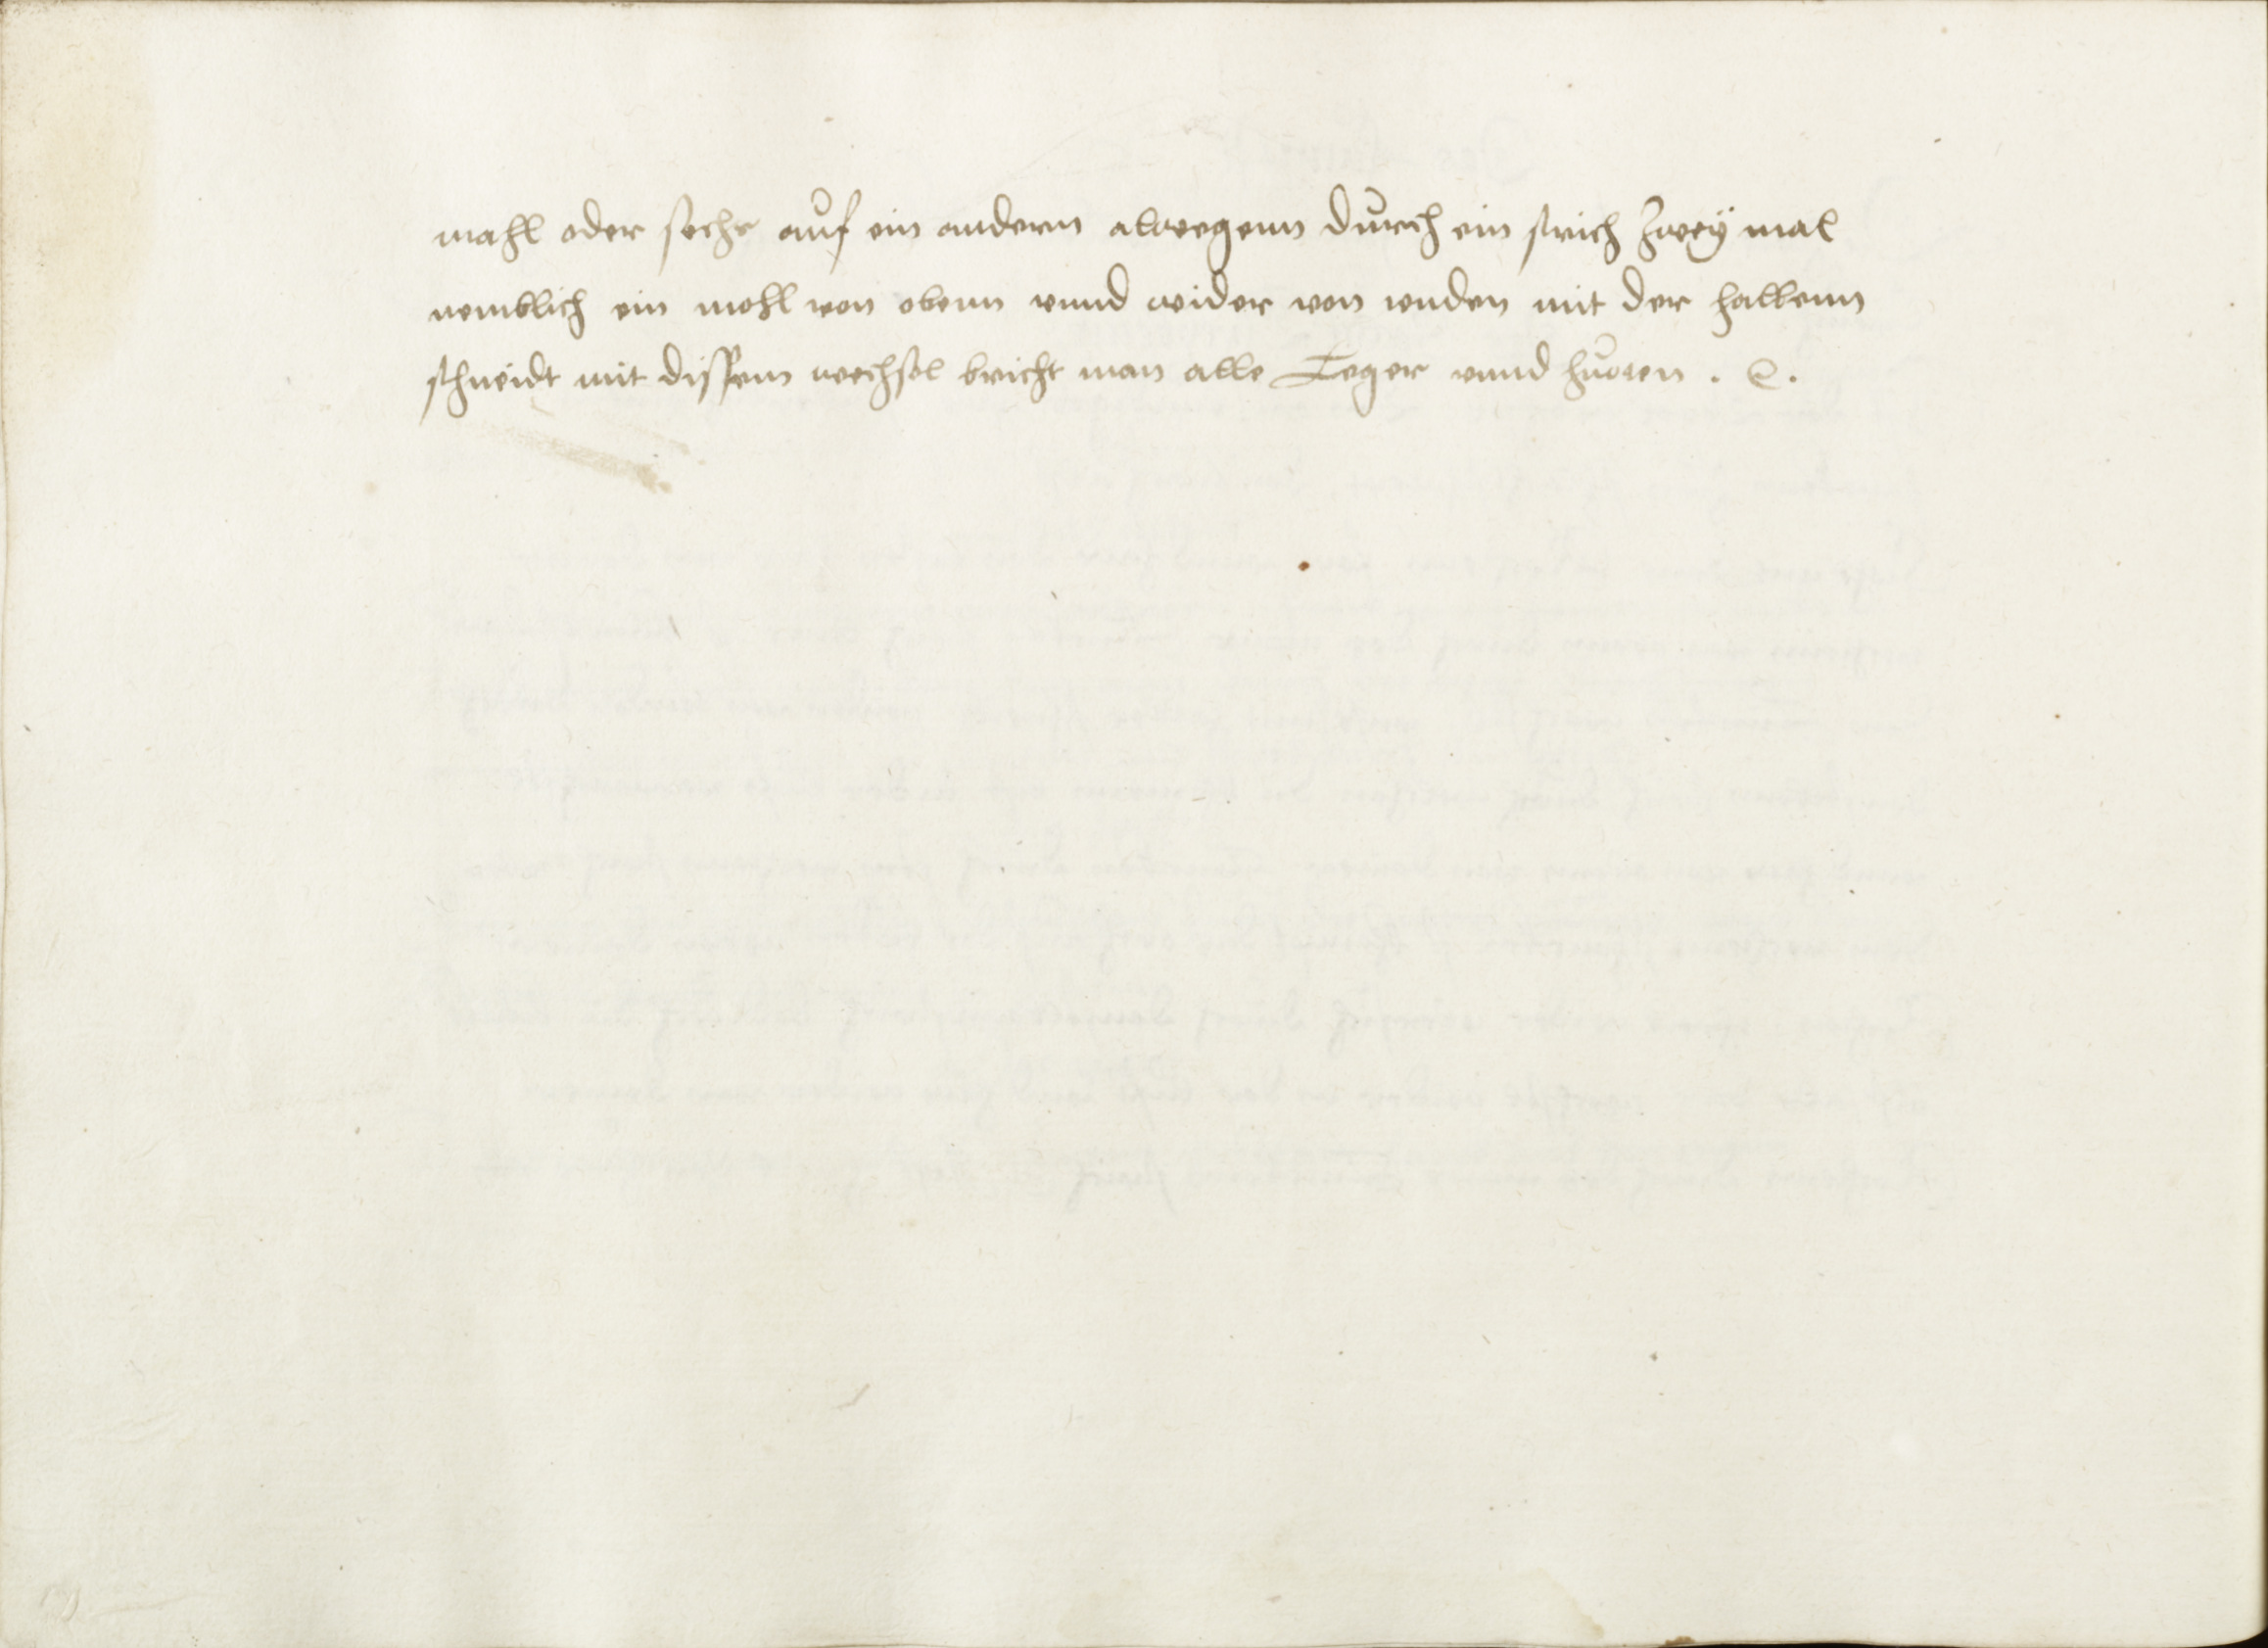 mahl oder sechs auf ein andern alwegenn durch ein strich zweÿ mal
nemblich ein mohl von obenn vnnd wider von vnden mit der halbenn
schneidt mit dissem wechsel bricht man alle Leger vnnd huoten . &.